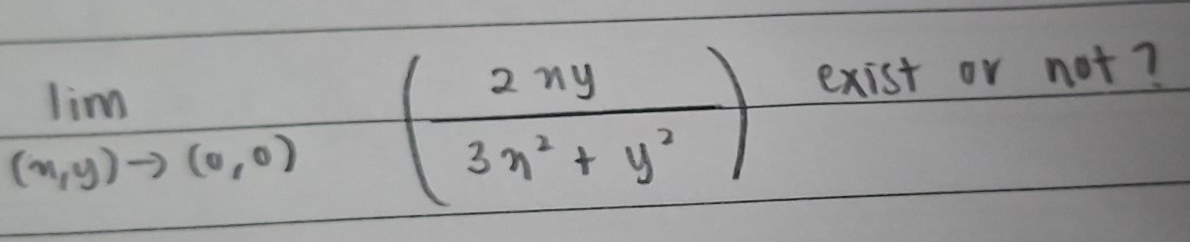 lim (x,y)→(0,0) (2xy / 3x² + y²) exist or not?